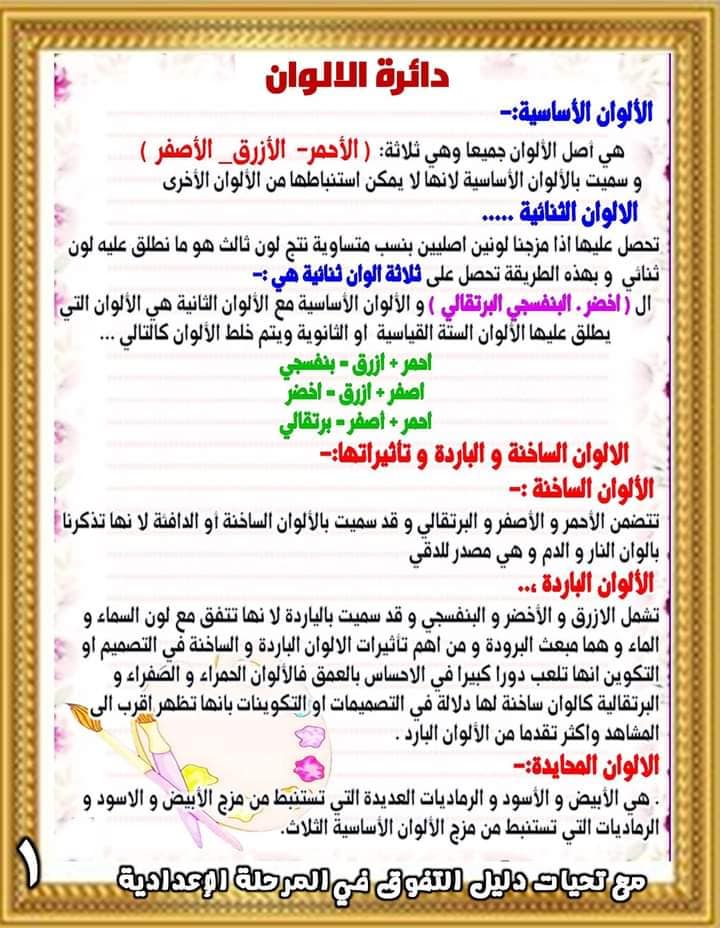 دائرة الالوان
الألوان الأساسية:-
هي أصل الألوان جميعا وهي ثلاثة: ( الأحمر- الأزرق_ الأصفر )
و سميت بالألوان الأساسية لانها لا يمكن استنباطها من الألوان الأخرى
الالوان الثنائية .....
تحصل عليها اذا مزجنا لونين اصليين بنسب متساوية نتج لون ثالث هو ما نطلق عليه لون
ثنائي و بهذه الطريقة تحصل على ثلاثة الوان ثنائية هي :-
ال ( اخضر . البنفسجي البرتقالي ) و الألوان الأساسية مع الألوان الثانية هي الألوان التي
يطلق عليها الألوان الستة القياسية او الثانوية ويتم خلط الألوان كالتالي ...
احمر + ازرق = بنفسجي
اصفر + ازرق = اخضر
احمر + أصفر = برتقالي
الالوان الساخنة و الباردة و تأثيراتها:-
الألوان الساخنة :-
تتضمن الأحمر و الأصفر و البرتقالي و قد سميت بالألوان الساخنة أو الدافئة لا نها تذكرنا
بالوان النار و الدم و هي مصدر للدقي
الألوان الباردة ،..
تشمل الازرق و الأخضر و البنفسجي و قد سميت بالياردة لا نها تتفق مع لون السماء و
الماء و هما مبعث البرودة و من اهم تأثيرات الالوان الباردة و الساخنة في التصميم او
التكوين انها تلعب دورا كبيرا في الاحساس بالعمق فالألوان الحمراء و الصفراء و
البرتقالية كالوان ساخنة لها دلالة في التصميمات او التكوينات بانها تظهر اقرب الى
المشاهد واكثر تقدما من الألوان البارد .
الالوان المحايدة:-
. هي الأبيض و الأسود و الرماديات العديدة التي تستنبط من مزج الأبيض و الاسود و
الرماديات التي تستنبط من مزج الألوان الأساسية الثلاث.
مع تحيات دليل التفوق في المرحلة الإعدادية
١